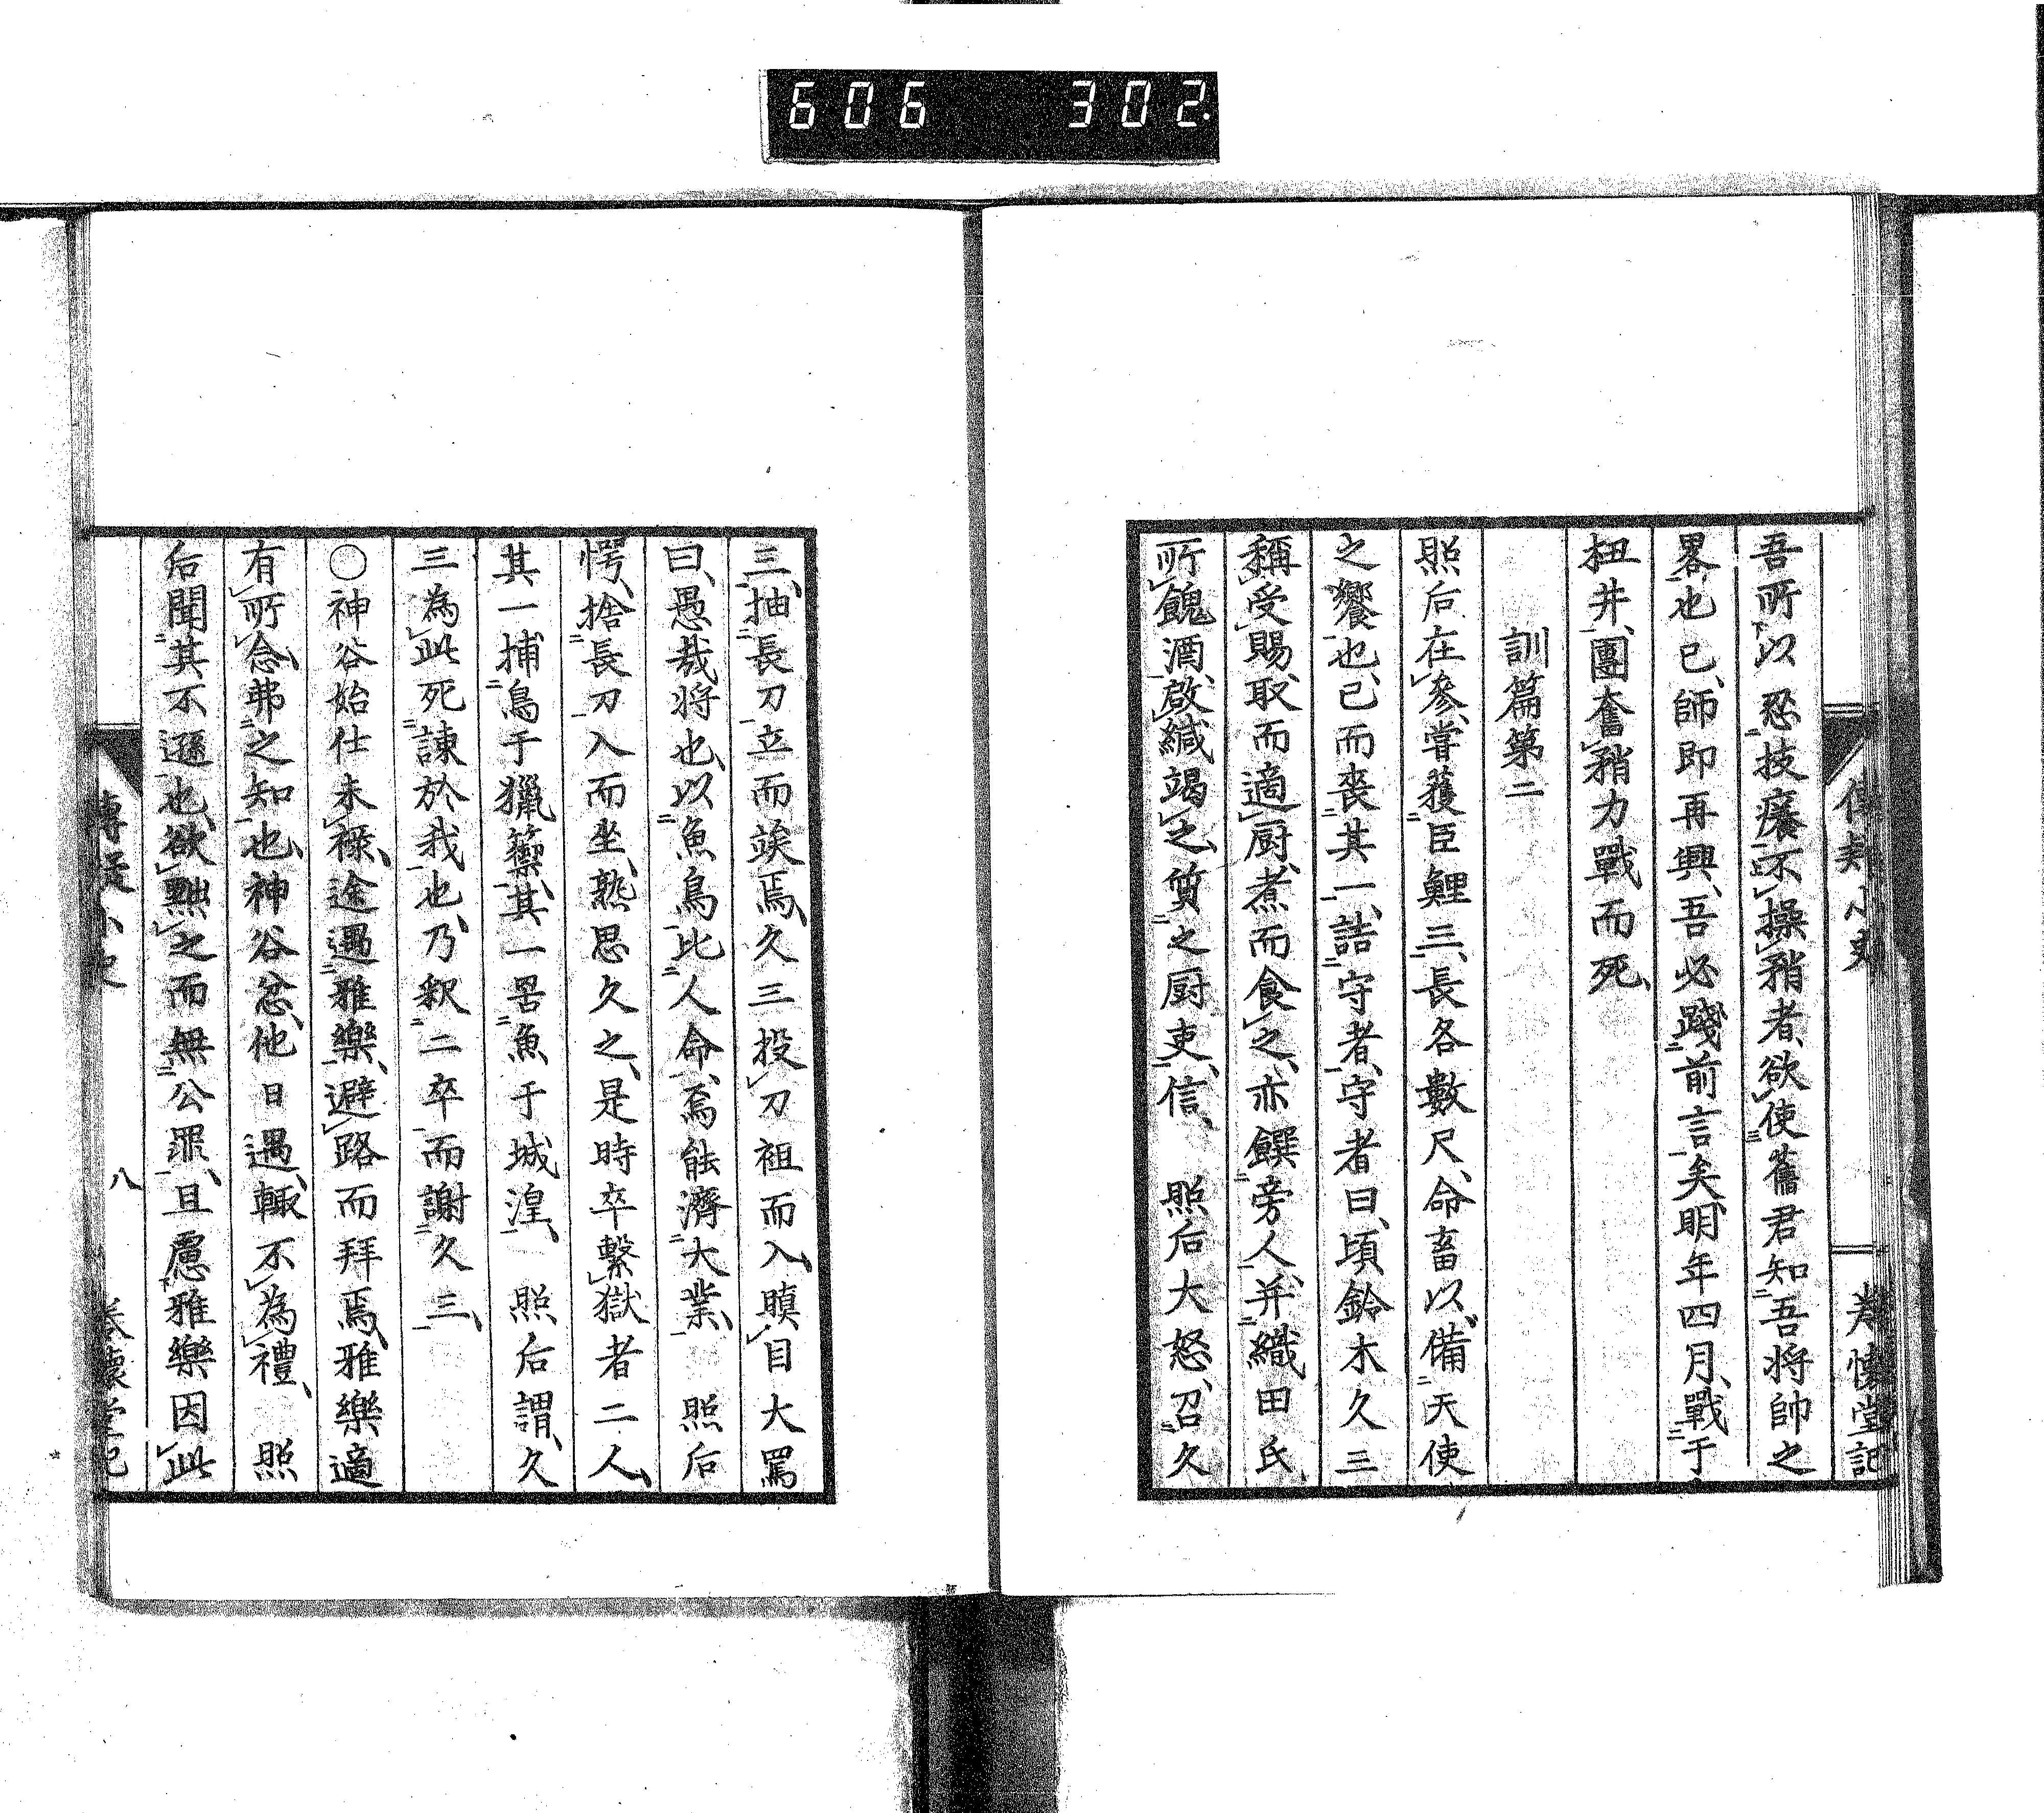 606 302.
吾所以忍技癢不操矟者、欲使舊君知吾将帥之
畧也已、師即再興、吾必踐前言矣、明年四月、戰于
杻井、團奮矟力戰而死、
訓篇第二
照后在參、嘗獲臣鯉三、長各數尺、命畜以備天使
之饗也、已而喪其一、詰守者、守者曰、頃鈴木久三
稱受賜、取而適厨、煮而食之、亦饌旁人、并織田氏
所餽酒、啟緘竭之、質之厨吏、信、照后大怒、召久
三、抽長刀立而竢焉、久三投刀袒而入、瞋目大罵
曰、愚哉将也、以魚鳥比人命、焉能濟大業、照后
愕、捨長刀入而坐、熟思久之、是時卒繫獄者二人、
其一捕鳥于獵籞、其一罟魚于城湟、照后謂、久
三為此死諫於我也、乃釈二卒而謝久三、
○神谷始仕未祿、途遇雅樂、避路而拜焉、雅樂適
有所念、弗之知也、神谷忿、他日遇、輙不為禮、照
后聞其不遜也、欲黜之而無公罪、且慮雅樂因此
八